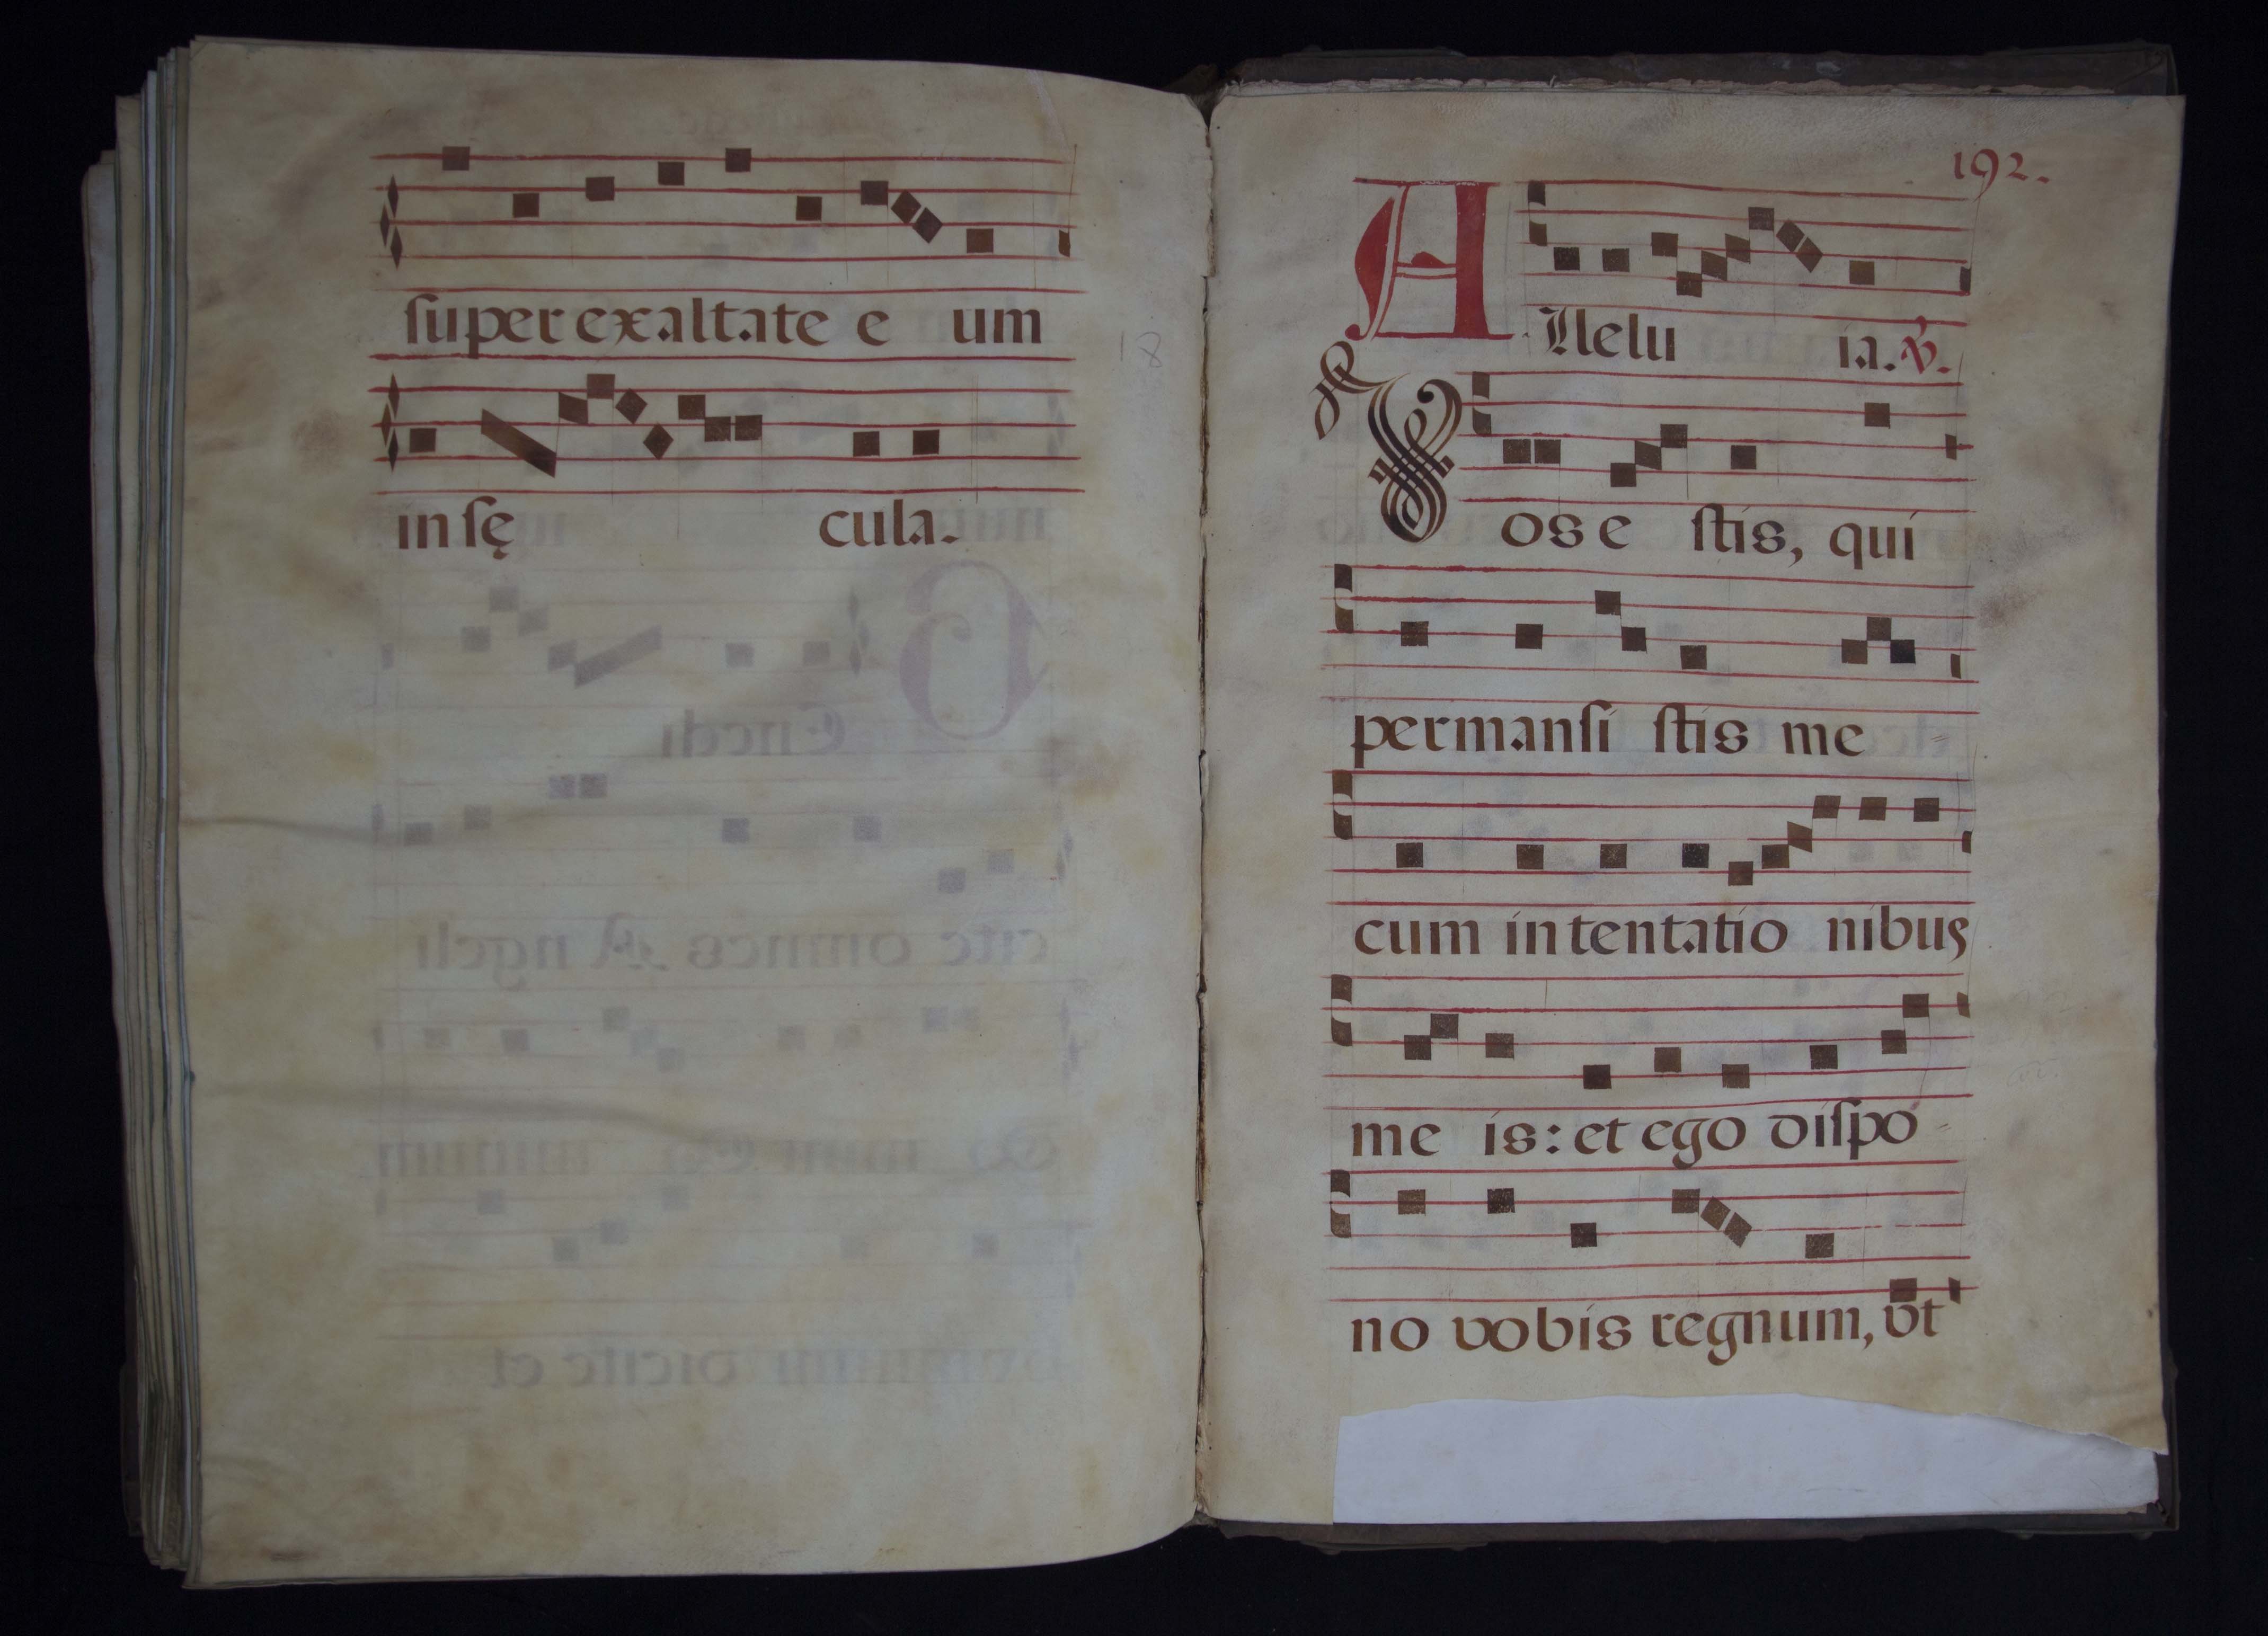 superexaltate e um
in sę cula.
18
192.
Allelu ia. ℣.
Vos e stis, qui
permansi stis me
cum in tentatio nibus
me is: et ego dispo
no vobis regnum, vt